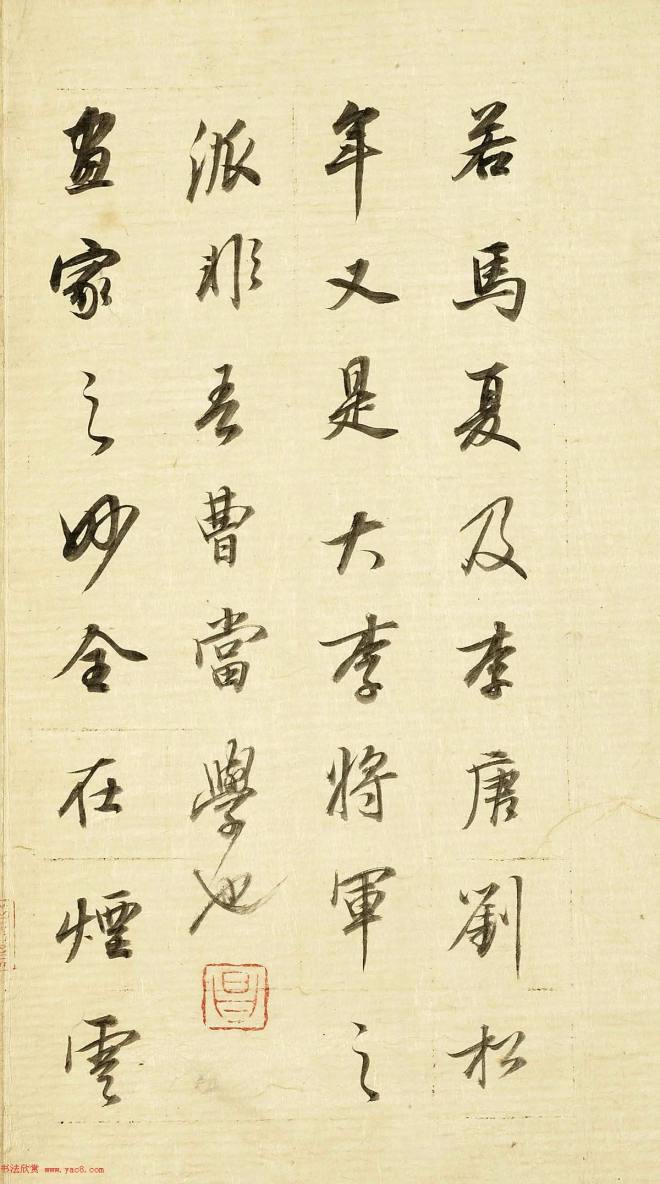 若馬夏及李唐劉松
年又是大李將軍之
派非吾曹當學也
畫家之妙全在煙雲
昌
书法欣赏 www.yac8.com